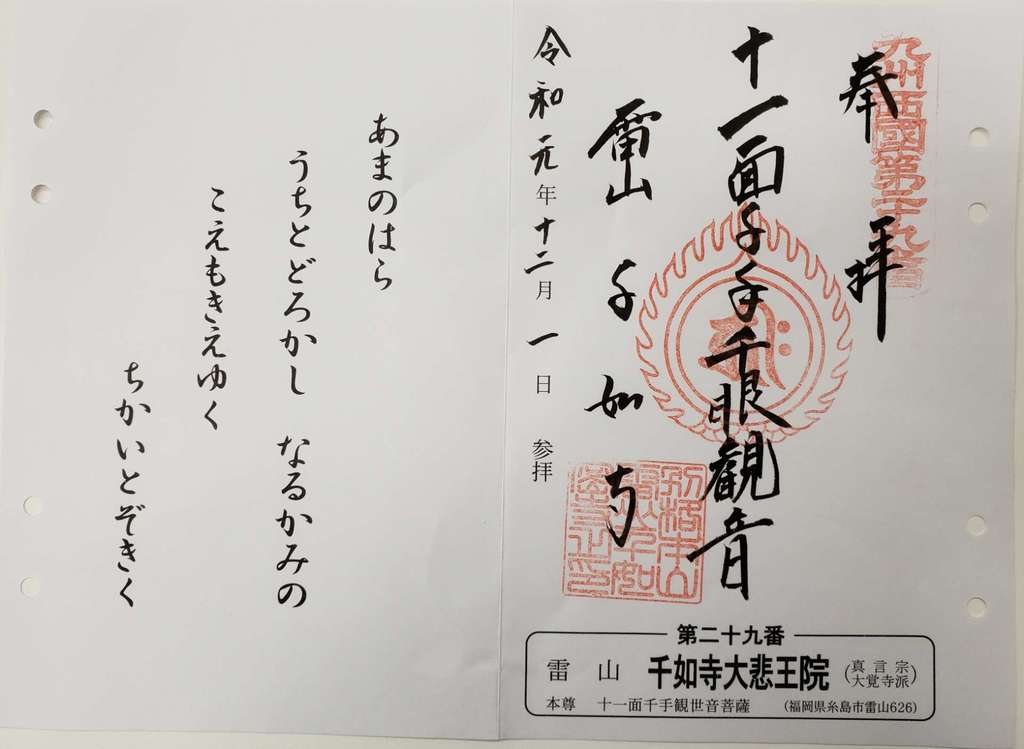 九州西國第二十九番
奉拝
十一面千手千眼観音
雷山 千如寺
令和元年十二月一日 参拝
第二十九番
雷山 千如寺大悲王院 (真言宗大覚寺派)
本尊 十一面千手観世音菩薩 (福岡県糸島市雷山626)
あまのはら
うちとどろかし なるかみの
こえもきえゆく
ちかいとぞきく